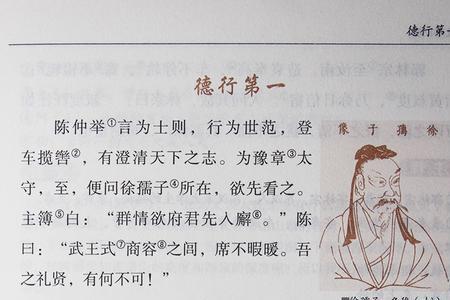 德行第一
德行第一
陈仲举①言为士则，行为世范，登
车揽辔②，有澄清天下之志。为豫章③太
守，至，便问徐孺子④所在，欲先看之。
主簿⑤白：“群情欲府君先入廨⑥。”陈
曰：“武王式⑦商容⑧之闾，席不暇暖。吾
之礼贤，有何不可！”
像子孺徐